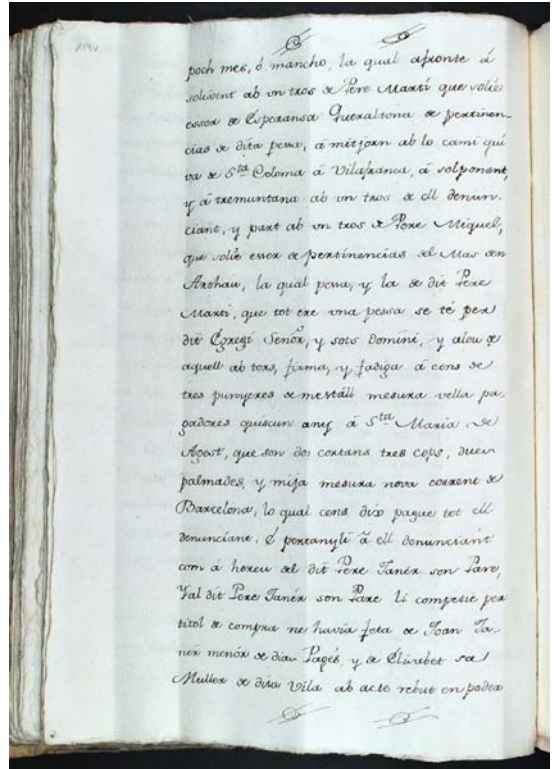 poch mes, ó mancho, la qual afronte á
solixent ab vn tros de Pere Martí que solie
esser de Esperansa Queraltona de pertinen-
cias de dita pessa, á mitjorn ab lo cami qui
va de S.ta Coloma á Vilafranca, á solponent,
y á tremuntana ab vn tros de ell denun-
ciant, y part ab vn tros de Pere Miquel,
que solie esser de pertinencias del Mas den
Arthau, la qual pessa, y la de dit Pere
Martí, que tot ere vna pessa se té per
dit Egregi Señor, y sots domini, y alou de
aquell ab tors, firma, y fadiga á cens de
tres punyeres de mestall mesura vella pa-
gadores quiscun any á S.ta Maria de
Agost, que son dos cortans tres cops, dues
palmades, y mija mesura nova corrent de
Barcelona, lo qual cens dix pague tot ell
denunciant, é pertanyli á ell denunciant
com á hereu del dit Pere Janér son Pare,
Y al dit Pere Janér son Pare li competit per
titol de compra ne havia feta de Joan Ja-
nér menór de dias Pagés, y de Elisabet sa
Muller de dita Vila ab acte rebut en poder